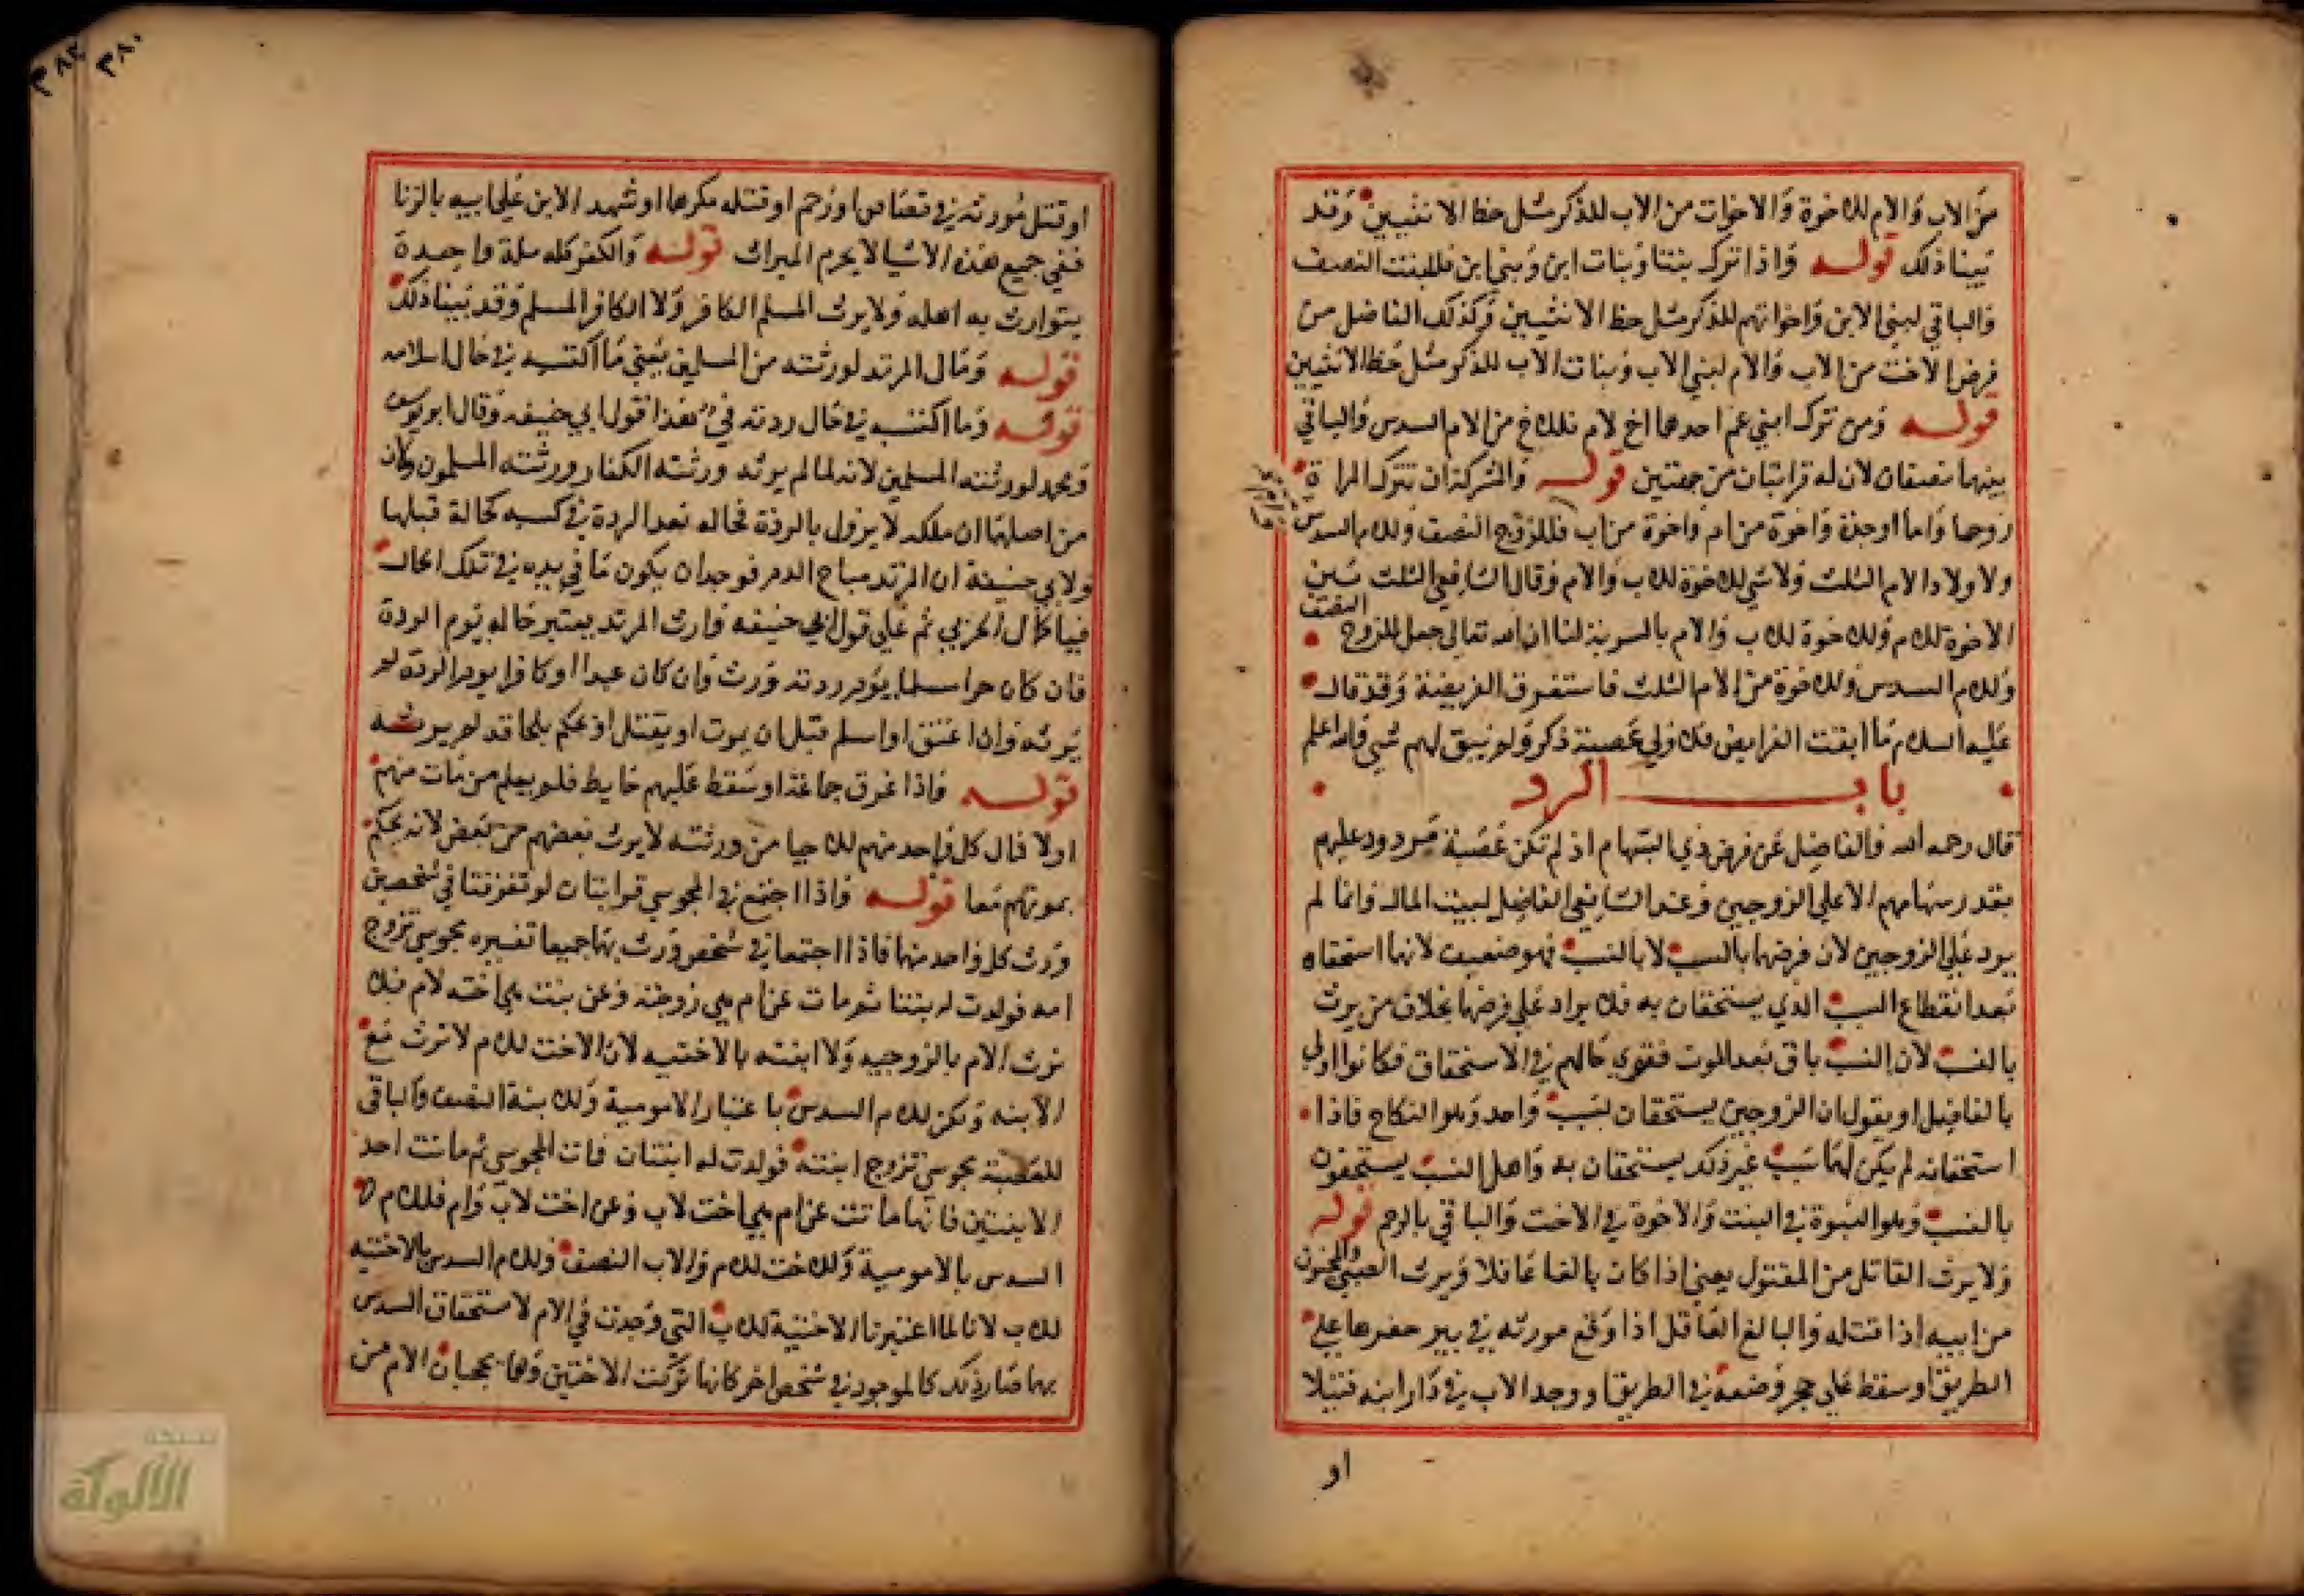 من الاب والام للاخوة والاخوات من الاب للذكر مثل حظ الانثيين وقد
بينا ذلك قوله واذا ترك بنتا وبنات ابن وبني ابن فللبنت النصف
والباقي لبني الابن واخواتهم للذكر مثل حظ الانثيين وكذلك الفاضل من
فرض الاخت من الاب والام لبني الاب وبنات الاب للذكر مثل حظ الانثيين
قوله ومن ترك ابني عم احدهما اخ لام فللاخ من الام السدس والباقي
بينهما نصفان لان له قرابتان من جهتين قوله والمشركة ان تترك المراة
زوجها واما او جدة واخوة من ام واخوة من اب فللزوج النصف وللام السدس
ولاولاد الام الثلث ولا شي للاخوة للاب والام وقال الشافعي الثلث بين
الاخوة للام وللاخوة للاب والام بالسوية لنا ان الله تعالى جعل للزوج النصف
وللام السدس وللاخوة من الام الثلث فاستغرق الفريضة وقد قال
عليه السلام ما ابقت الفرايض فلاولي عصبة ذكر ولم يبق لهم شي والله اعلم
باب الرد
قال رحمه الله والفاضل عن فرض ذي السهام اذ لم تكن عصبة مردود عليهم
بقدر سهامهم الا على الزوجين وعند الشافعي الفاضل لبيت المال وانما لم
يرد على الزوجين لان فرضهما بالسبب لا بالنسب فهو ضعيف لانهما استحقاه
بعد انقطاع السبب الذي يستحقان به فلا يزاد على فرضهما بخلاف من يرث
بالنسب لان النسب باق بعد الموت فقوي حالهم في الاستحقاق فكانوا اولى
بالفاضل او يقول ان الزوجين يستحقان بسبب واحد وهو النكاح فاذا
استحقانه لم يكن لهما سبب غير ذلك يستحقان به واهل النسب يستحقون
بالنسب وهو البنوة في البنت والاخوة في الاخت والباقي بالرحم قوله
ولا يرث القاتل من المقتول يعني اذا كان بالغا عاقلا ويرث الصبي والمجنون
من ابيه اذا قتله والبالغ العاقل اذا وقع مورثه في بير حفرها على
الطريق او سقط على حجر وضعه في الطريق او وجد الاب في دار ابنه قتيلا
او
او قتل مورثه في قصاص او رجم او قتله مكرها او شهد الابن على ابيه بالزنا
ففي جميع هذه الاشيا لا يحرم الميراث قوله والكفر كله ملة واحدة
يتوارث به اهله ولا يرث المسلم الكافر ولا الكافر المسلم وقد بينا ذلك
قوله ومال المرتد لورثته من المسلمين يعني ما اكتسبه في حال اسلامه
قوله وما اكتسبه في حال ردته فيء هذا قول ابي حنيفه وقال ابو يوسف
ومحمد لورثته المسلمين لانه لما لم يرثه ورثته الكفار ورثته المسلمون ولان
من اصلهما ان ملكه لا يزول بالردة فحاله بعد الردة في كسبه كحالة قبلها
ولابي حنيفة ان المرتد مباح الدم فوجد ان يكون ما في يده في تلك الحال
فيا كمال الحربي ثم على قول ابي حنيفه وارث المرتد يعتبر حاله يوم الردة
فان كان حرا مسلما يوم ردته ورث وان كان عبدا او كافرا يوم الردة لم
يرثه وان اعتق او اسلم قبل ان يموت او يقتل او حكم بلحاقه لم يرثه
قوله واذا غرق جماعة او سقط عليهم حايط فلم يعلم من مات منهم
اولا فمال كل واحد منهم للاحيا من ورثته لا يرث بعضهم من بعض لانه يحكم
بموتهم معا قوله واذا اجتمع في المجوسي قرابتان لو تفرقتا في شخصين
ورث كل واحد منهما فاذا اجتمعا في شخص ورث بهما جميعا تفسيره مجوسي تزوج
امه فولدت له بنتا ثم مات عن ام هي زوجته وعن بنت هي اخته لام فلا
ترث الام بالزوجيه ولا ابنته بالاختيه لان الاخت للام لا ترث مع
الابنه ولكن للام السدس باعتبار الامومية وللابنة النصف والباقي
للعصبة مجوسي تزوج ابنته فولدت له ابنتان فمات المجوسي ثم ماتت احد
الابنتين فانها ماتت عن ام هي اخت لاب وعن اخت لاب وام فللام
السدس بالامومية وللاخت للام والاب النصف وللام السدس بالاختيه
للاب لانا لما اعتبرنا الاختية للاب التي وجدت في الام لاستحقاق السدس
بهما صار ذلك كالموجود في شخص اخر كانها تركت الاختين وهما يحجبان الام من